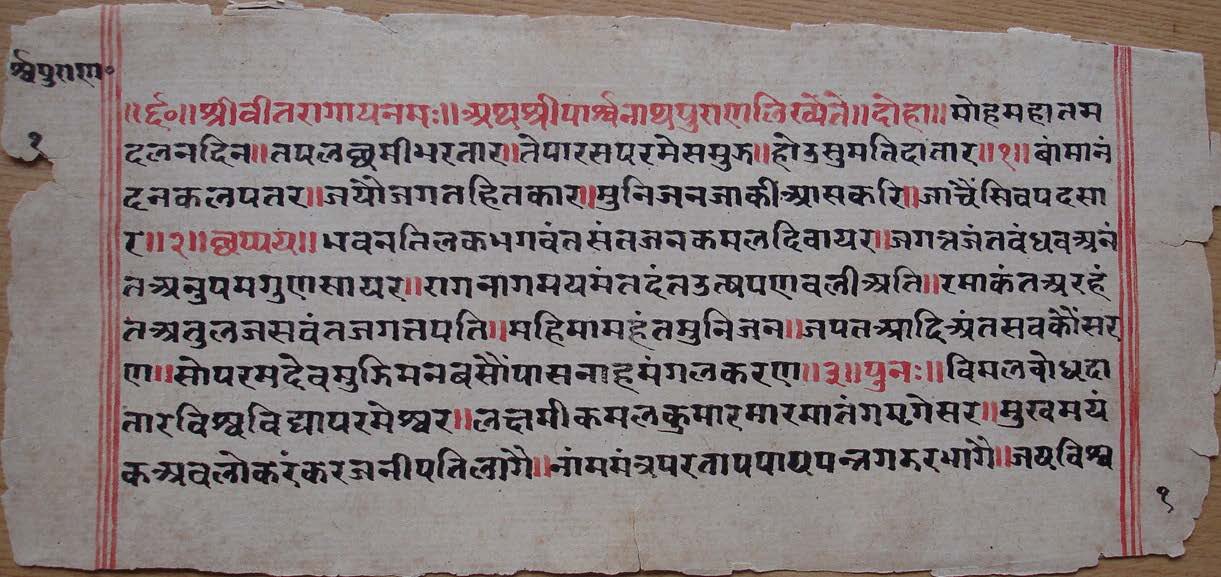 र्श्वपुराण॰
१
॥र्द्द०॥श्रीवीतरागायनमः॥अथश्रीपार्श्वनाथपुराणलिख्येते॥दोहा॥मोहमहातम
दलनदिन॥तपलछमीभरतार॥तेपारसपरमेसमुऊ॥होउसुमतिदातार॥१॥बांमानं
दनकलपतर॥जयौजगतहितकार॥मुनिजनजाकीआसकरि॥जाचैंसिवपदसा
र॥२॥छप्पय॥भवनतिलकभगवंतसंतजनकमलदिवायर॥जगतजंतवंधवअनं
तअनुपमगुणसायर॥रागनागमयमंतदंतउत्षपणवलीअति॥रमाकंतअरहं
तअतुलजसवंतजगतपति॥महिमामहंतमुनिजन॥जपतआदिअंतसवकौंसर
ण॥सोपरमदेवमुऊिमनबसौंपासनाहमंगलकरण॥३॥पुनः॥विमलवोधदा
तारविश्वविद्यापरमेश्वर॥लछमीकमलकुमारमारमातंगमृगेसर॥मुखमयं
कअवलोकरंकरजनीपतिलागै॥नांममंत्रपरतापपापपन्नगऊरभागै॥जयविश्व
१